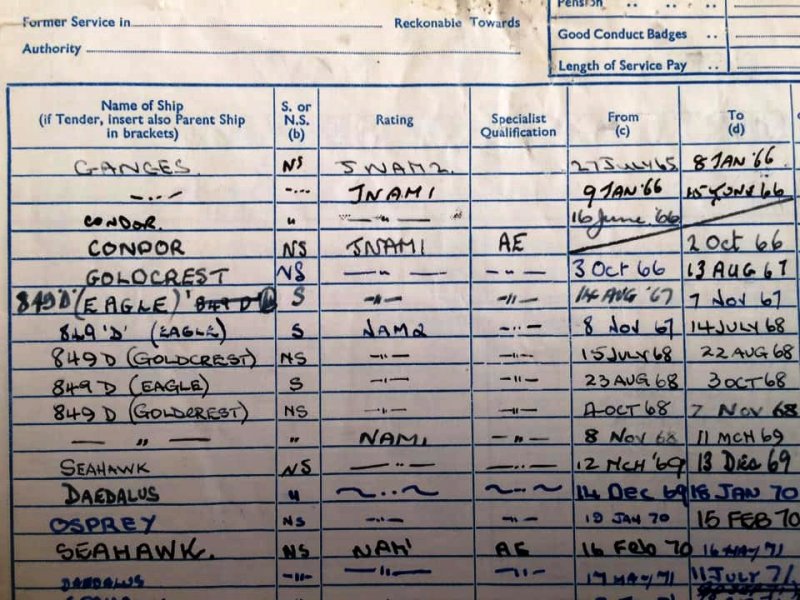 Former Service in Reckonable Towards
Authority
Pension ..
Good Conduct Badges ..
Length of Service Pay ..
Name of Ship (if Tender, insert also Parent Ship in brackets) S. or N.S. (b) Rating Specialist Qualification From (c) To (d)
GANGES. NS JNAM2. 27 JULY 65 8 JAN '66
—..— —..— JNAM1 9 JAN '66 15 JUNE '66
CONDOR. " — " — " — 16 June '66
CONDOR NS JNAM1 AE 2 Oct 66
GOLDCREST NS — " — — " — 3 Oct 66 13 AUG 67
849 'D' (EAGLE) S —"— —"— 14 AUG '67 7 Nov 67
849 'D' (EAGLE) S NAM2 —"— 8 Nov 67 14 JULY 68
849 D (GOLDCREST) NS —"— —"— 15 JULY 68 22 AUG 68
849 D (EAGLE) S —"— —"— 23 AUG 68 3 OCT 68
849 D (GOLDCREST) NS —"— —"— 4 OCT 68 7 Nov 68
— " — " NAM1 —"— 8 Nov 68 11 MCH 69
SEAHAWK NS —"— —"— 12 MCH '69 13 Dec 69
DAEDALUS " —"— —"— 14 Dec 69 18 JAN 70
OSPREY NS —"— —"— 19 JAN 70 15 FEB 70
SEAHAWK. NS NAM1 AE 16 Feb 70 16 MAY 71
DAEDALUS —"— —"— —"— 17 MAY 71 11 JULY 71